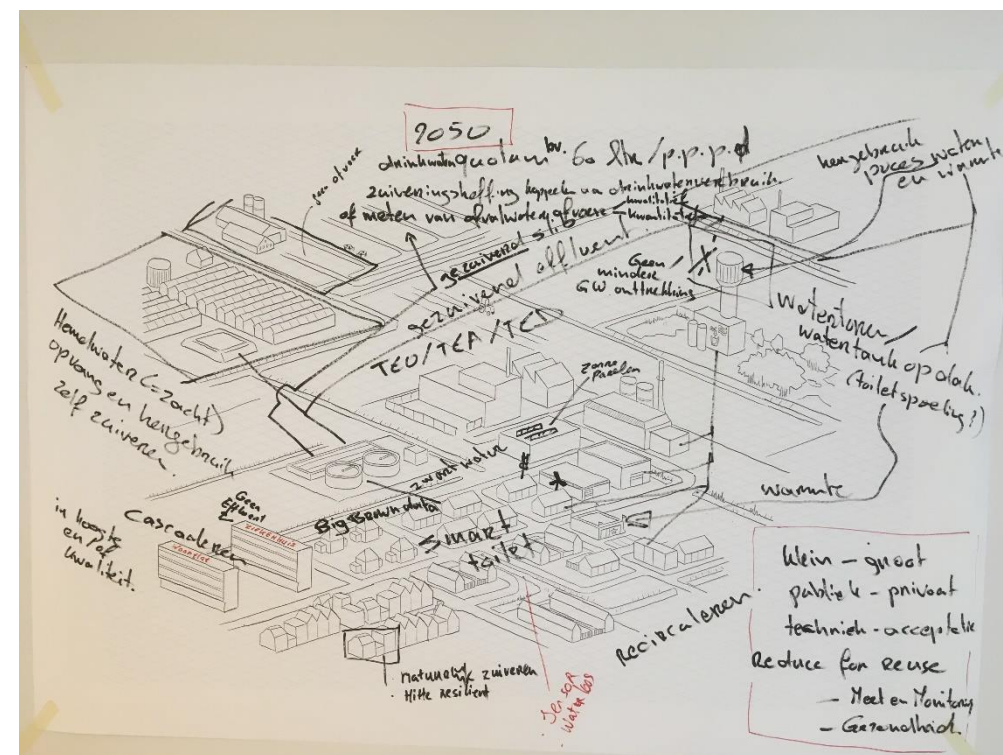 2050
drinkwaterquotum bv. 60 ltr/p.p.p.d
zuiveringsheffing koppelen aan drinkwaterverbruik
of meten van afvalwaterafvoer
kwalitatief
kwantitatief
geen afvoer
hergebruik
proces water
en warmte
gezuiverd slib
gezuiverd effluent
TEO/TEA/TED
Geen
minder
GW onttrekking
Watertoren
watertank op dak.
(toiletspoeling?)
Hemelwater (=zacht)
opvang en hergebruik
zelf zuiveren.
zonne
panelen
zwart water
warmte
Geen
Effluent
Big Brown data
Smart
toilet
in hoogte
en per
kwaliteit.
Cascaderen
ziekenhuis
woonflat
Recirculeren.
natuurlijk zuiveren
Hitte resilient
Sensor
Waterloos
klein - groot
publiek - privaat
techniek - acceptatie
Reduce for reuse
- Meet en Monitoring
- Gezondheid.